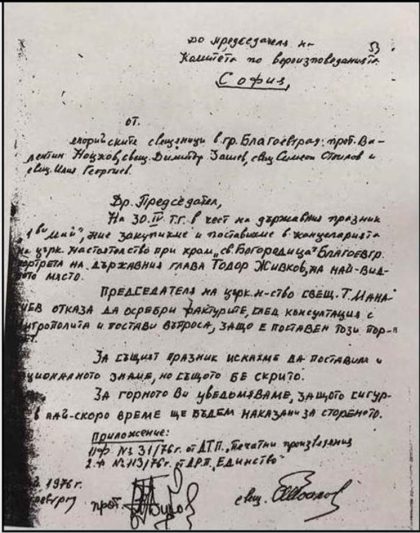 До председателя на
Комитета по вероизповеданията
53
София
от
енорийските свещеници в гр. Благоевград: прот. Ва-
лентин Ноцков, свещ. Димитър Зашев, свещ. Симеон Стоилов и
свещ. Илия Георгиев.
Др. Председател,
На 30.IV т.г. в чест на държавния празник
"1ви Май", ние закупихме и поставихме в канцеларията
на църк. настоятелство при храм "св. Богородица" Благоевгр.
портрета на държавния глава Тодор Живков, на най-вид-
ното място.
Председателя на църк. н-ство свещ. Т.
отказа да осребри фактурите, след консултация с
митрополита и постави въпроса, защо е поставен този пор-
ет.
За същият празник искахме да поставим и
ционалното знаме, но същото бе скрито.
За горното Ви уведомяваме, защото сигур-
в най-скоро време ще бъдем наказани за стореното.
Приложение:
1/ Ф № 31/76г. от ДТП "Печатни произведения
2. Ф № 113/76г. от "Единство"
1976г
прот.
свещ.